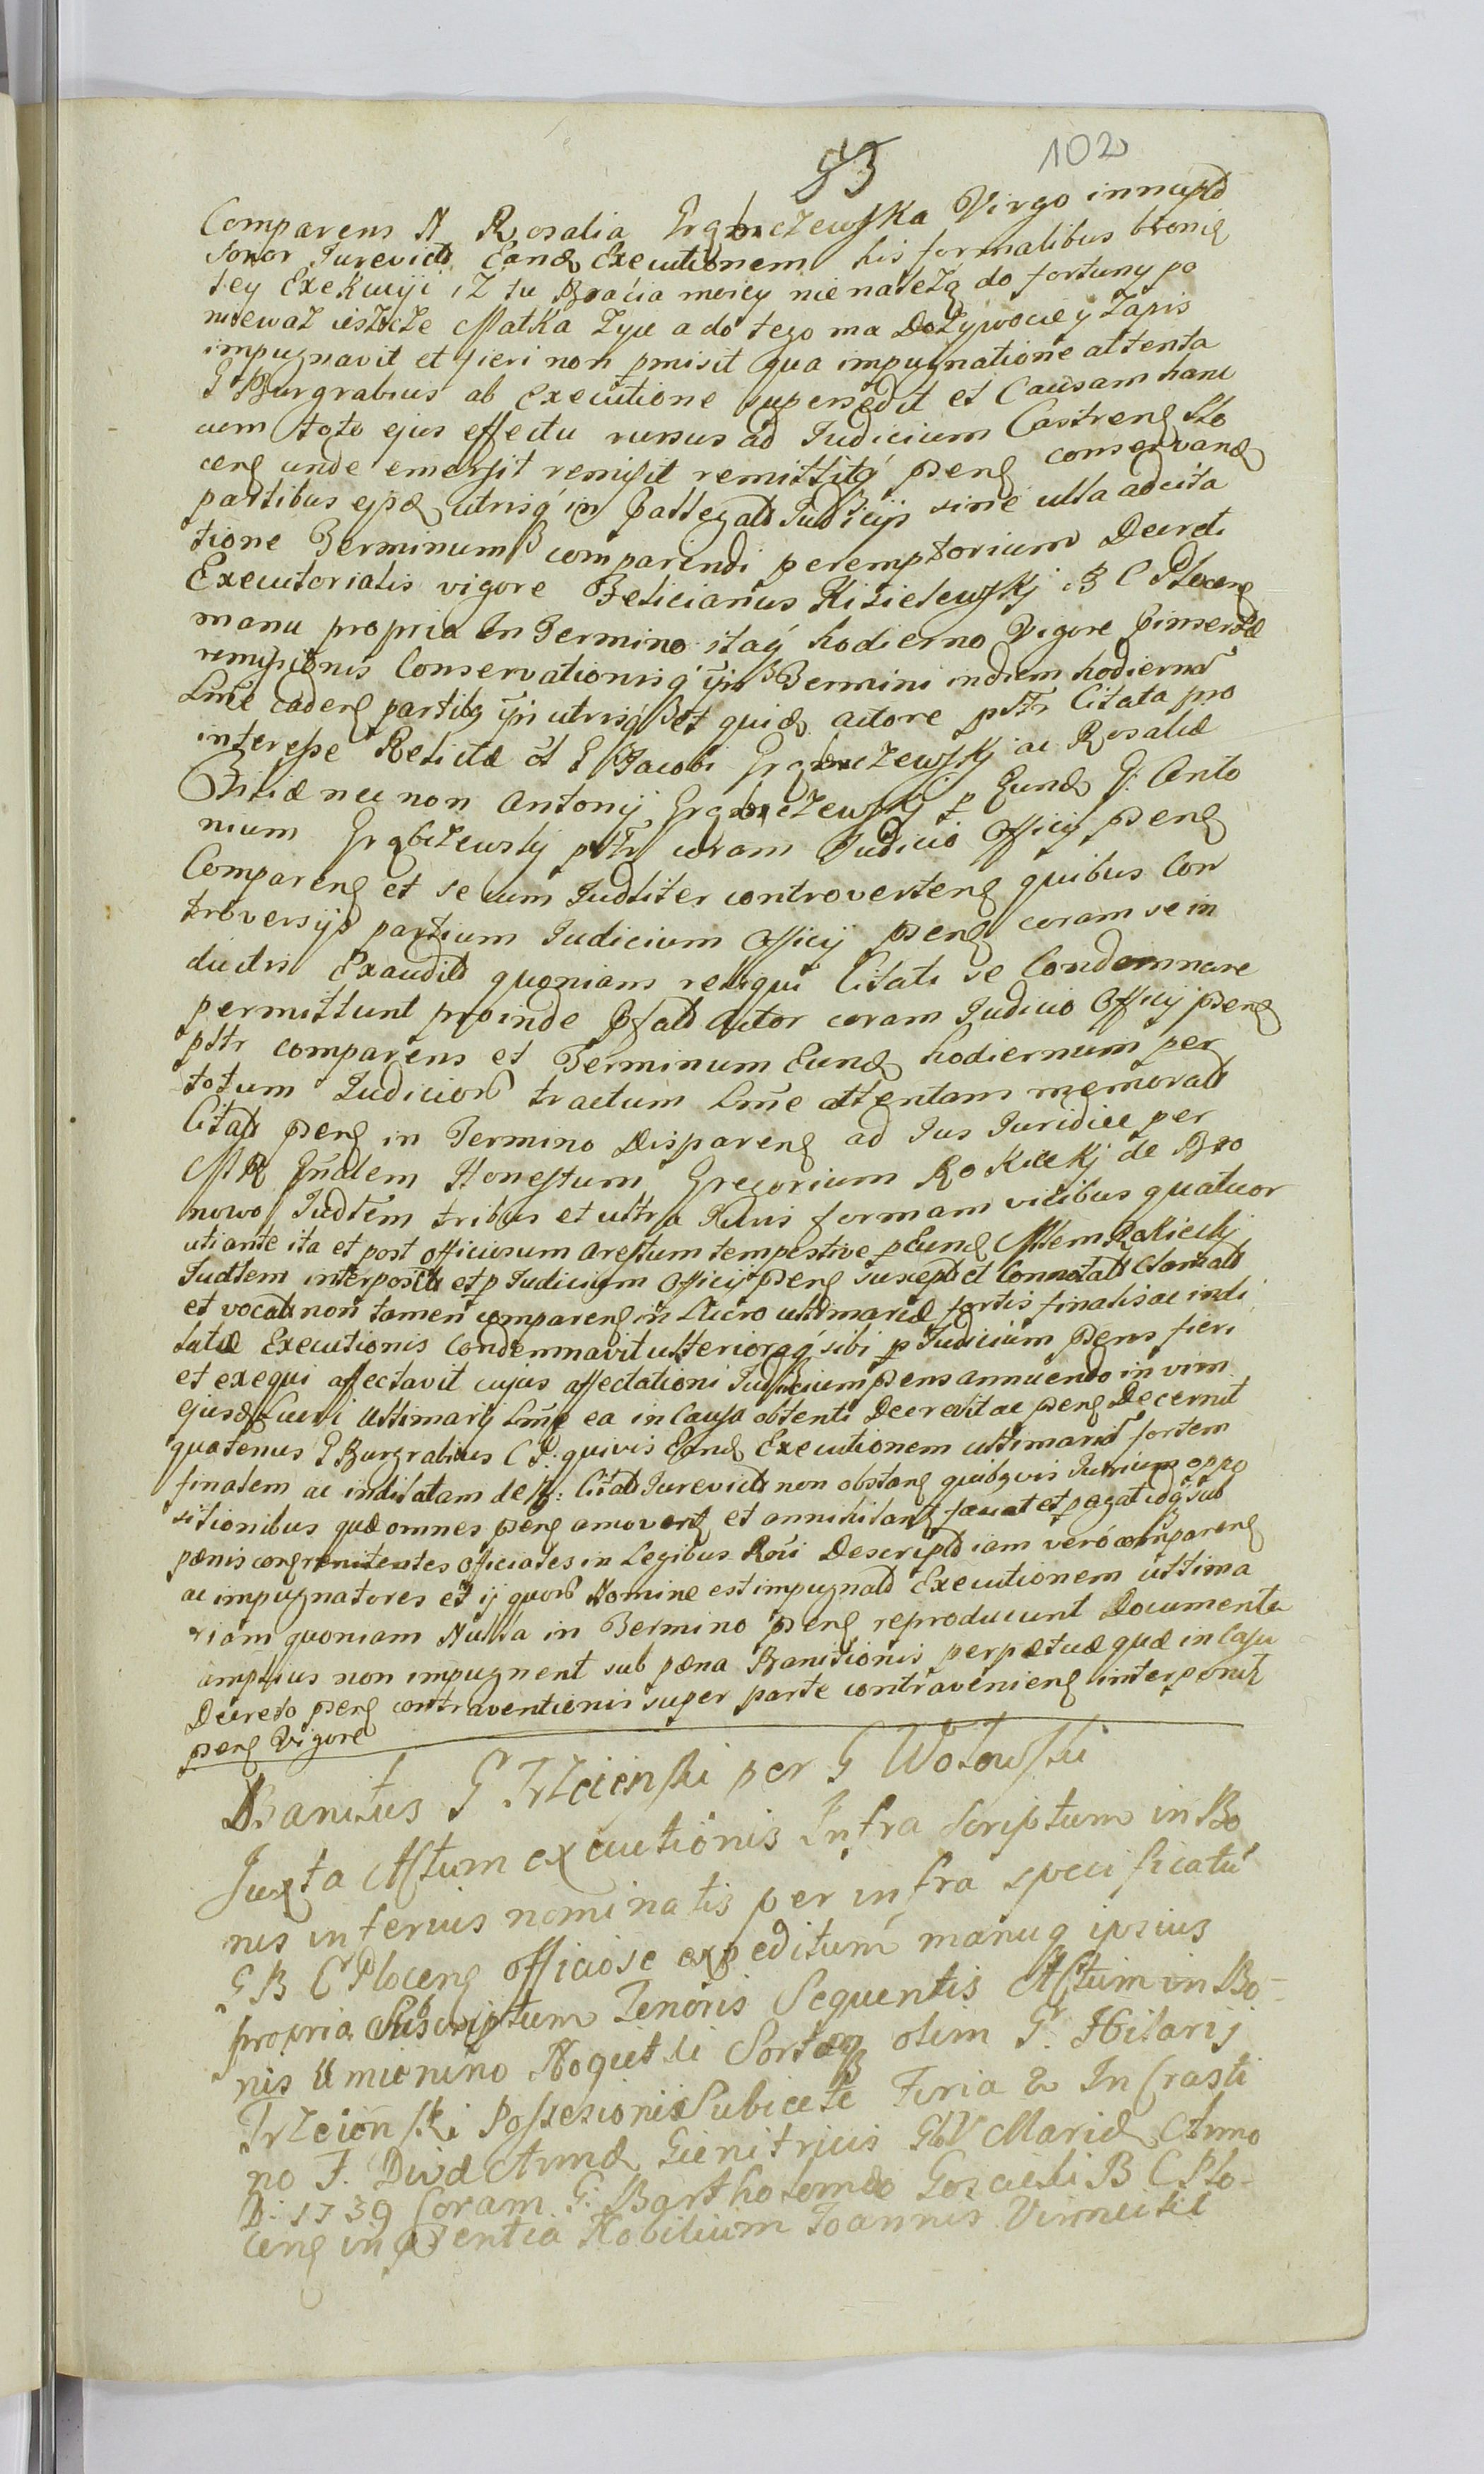 93 102
Comparens N Rosalia Grąbczewska Virgo innupta
soror Jurevicti Eand Executionem his formalibus bronię
tey Exekucyi iż tu Bracia moiey nie należą do fortuny po
niewaz ieszcze Matka zyie a do tego ma Dożywocie y Zapis
impugnavit et fieri non pmisit qua impugnatione attenta
G Burgrabius ab Executione supersedit et Causam hanc
cum toto ejus effectu rursus ad Judicium Castrens Plo
cens unde emersit remisit remittitq pens conservand
partibus ejsd utrisq in Pattegatis Judicijs sine ulla adcita
tione Terminum comparendi peremptorium Decreti
Executorialis vigore Felicianus Kisielewskj B C Plocens
manu propria In Termino itaq hodierno Vigore pinsertæ
remissionis Conservationisq ijn Termini in diem hodiernā
Līme cadens partibq ijn utrisq et quid actore psttr Citata pro
interesse Relictæ ol G Jacobi Grąbczewskj ac Rosaliæ
Filiæ nec non Antonij Grąbczewskj p Eund G. Anto
nium Grąbczewskj psttr coram Judicio Officij pens
Comparens et se cum Judliter controvertens quibus Con
troversijs partium Judicium Officij pens coram se in
ductis Exauditis quoniam reliqui Citati se Condemnare
permittunt proinde pfatus Actor coram Judicio Officij pens
psttr comparens et Terminum Eund hodiernum per
totum Judiciorū tractum Līme attentans memoratos
Citatos pens in Termino Disparens ad Jus Juridice per
M R Gnālem Honestum Gregorium Rokickj de Bro
nowo Judtem tribus et ultra Juris formam vicibus quatuor
uti ante ita et post Officiosum Arestum tempestive p Eund Mtem Rokickj
Judtem interpositū et p Judicium Officij pens susceptū et Connotatū Clamatos
et vocatos non tamen comparens in Lucro ultimariæ fortis finalis ac indi
latæ Executionis Condemnavit ulterioraq sibi p Judicium pens fieri
et exequi affectavit cujus affectationi Judicium pens annuendo in vim
ejusd Lucri Ultimarij Līme ea in Causa obtenti Decrevit ac pens Decernit
quatenus G Burgrabius C P. quivis Eand Executionem ultimariā fortem
finalem ac indilatam de B: Citatis Jurevictis non obstans quibqvis Jurium oppo
sitionibus quæ omnes pens amovent et annihilant faciat et pagat idq sub
pænis contrenitentes Officiales in Legibus Rni Descriptis iam vero comparens
ac impugnatores et ij quorū Nomine est impugnatū Executionem ultima
riam quoniam Nulla in Termino pens reproducunt Documenta
amplius non impugnent sub pæna Banitionis perpætuæ quæ in Casu
Decreto pens contraventionis super parte contraveniens interponit
pens Vigore
Banitus G Trzcienski per G Wołowski
Juxta Actum executionis Infra scriptum in Bo
nis inferius nominatis per infra specificatū
G B C Plocens officiose expeditum manuq ipsius
propria Subscriptum Tenoris Sequentis Actum in Bo-
nis Umienino Nogietki Sortæ olim G. Hilarij
Trzcienski Possesionis Subiecte Feria 2 In Crasti
no F. Divæ Annæ Gienitricis GbV Mariæ Anno
D: 1739 Coram G: Bartholomæo Goscicki B C Plo-
cens in psentia Nobilium Joannis